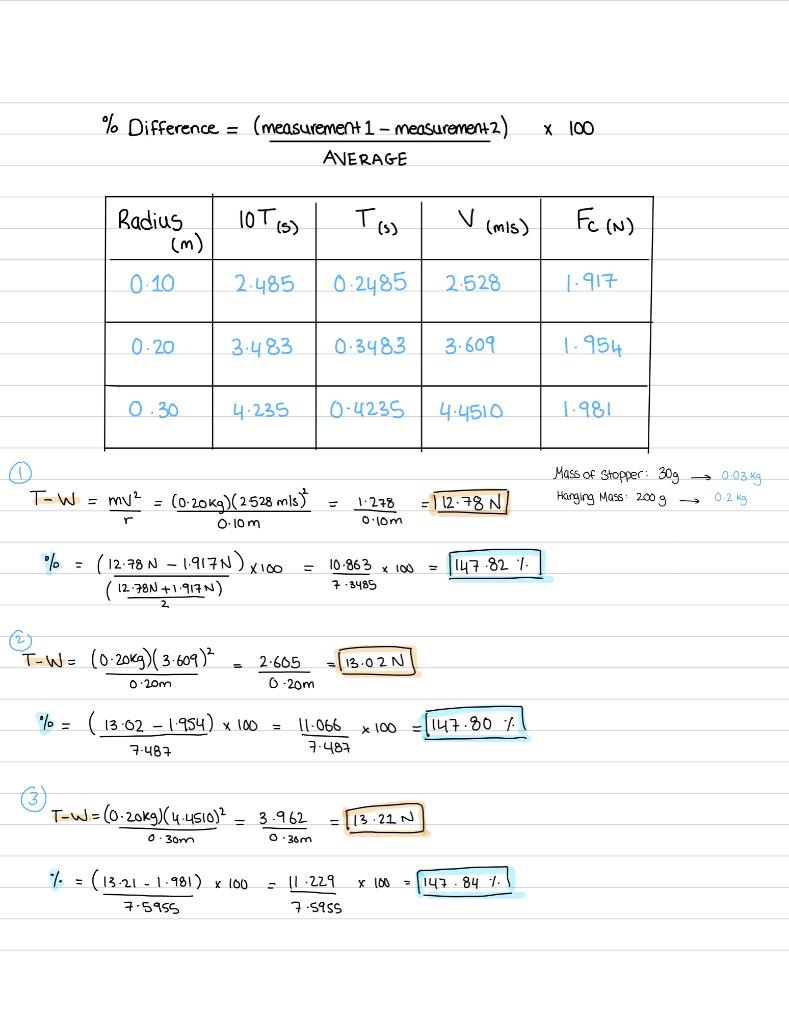 % Difference = (measurement 1 - measurement 2) x 100
AVERAGE
Radius (m) 10T (s) T (s) V (m/s) Fc (N)
0.10 2.485 0.2485 2.528 1.917
0.20 3.483 0.3483 3.609 1.954
0.30 4.235 0.4235 4.4510 1.981
Mass of Stopper: 30g → 0.03 kg
Hanging Mass: 200 g → 0.2 kg
①
T-W = mv²/r = (0.20kg)(2.528 m/s)²/0.10m = 1.278/0.10m = 12.78 N
% = (12.78 N - 1.917 N)/((12.78N + 1.917N)/2) x 100 = 10.863/7.3485 x 100 = 147.82 %
②
T-W = (0.20kg)(3.609)²/0.20m = 2.605/0.20m = 13.02 N
% = (13.02 - 1.954)/7.487 x 100 = 11.066/7.487 x 100 = 147.80 %
③
T-W = (0.20kg)(4.4510)²/0.30m = 3.962/0.30m = 13.21 N
% = (13.21 - 1.981)/7.5955 x 100 = 11.229/7.5955 x 100 = 147.84 %